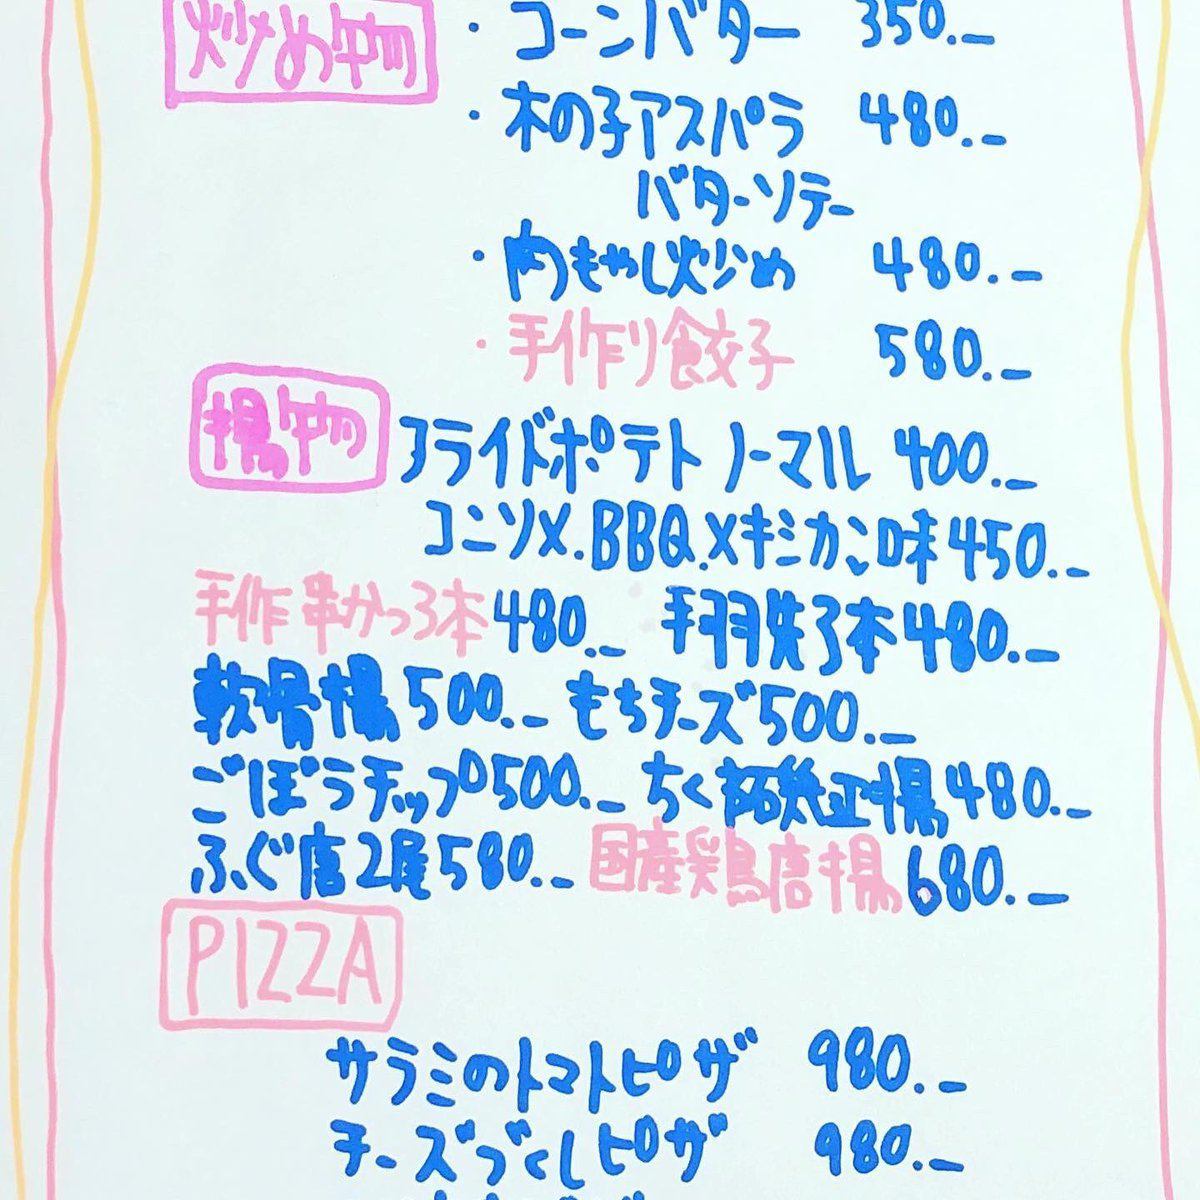 炒め物 ・コーンバター 350.-
・木の子アスパラ 480.-
バターソテー
・肉もやし炒め 480.-
・手作り餃子 580.-
揚物 フライドポテト ノーマル 400.-
コンソメ.BBQ.メキシカン味 450.-
手作串かつ3本 480.- 手羽先3本 480.-
軟骨揚 500.- もちチーズ 500.-
ごぼうチップ 500.- ちく磯辺揚 480.-
ふぐ唐2尾 580.- 国産鶏唐揚 680.-
PIZZA
サラミのトマトピザ 980.-
チーズづくしピザ 980.-